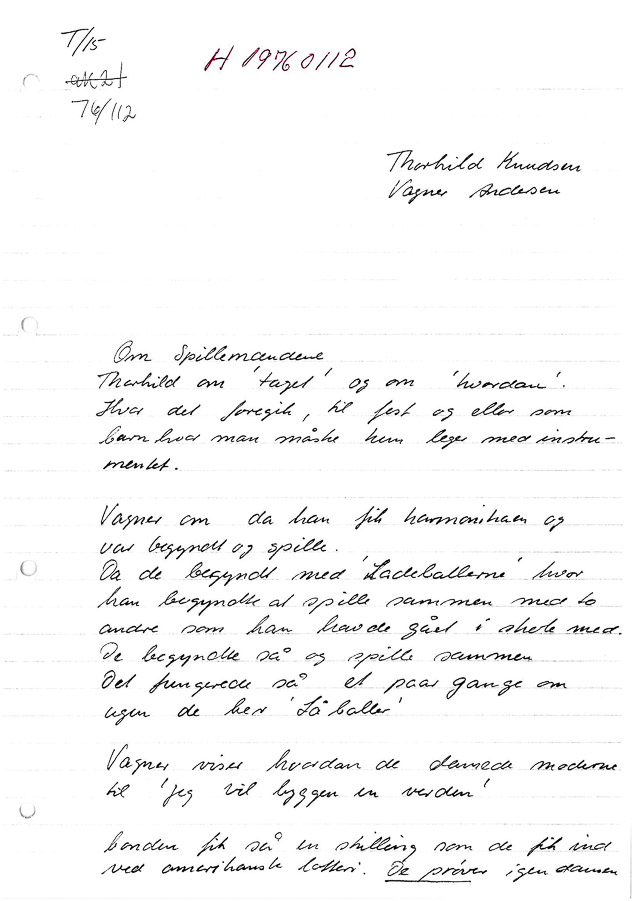 T/15
H 19760112
ak 21
76/112
Thorhild Knudsen
Vagner Andersen
Om Spillemændene
Thorhild om 'taget' og om 'hvordan'.
Hvor det foregik, til fest og eller som
barn hvor man måske kun leger med instru-
mentet.
Vagner om da han fik harmonikaen og
var begyndt og spille.
Da de begyndt med 'Ladeballerne' hvor
han begyndte at spille sammen med to
andre som han havde gået i skole med.
De begyndte så og spille sammen
Det fungerede så et paar gange om
ugen de her 'Låballer'
Vagner viser hvordan de dansede moderne
til 'Jeg vil byggen en verden'
bonden fik så en skilling som de fik ind
ved amerikanske lotteri. De prøver igen dansen